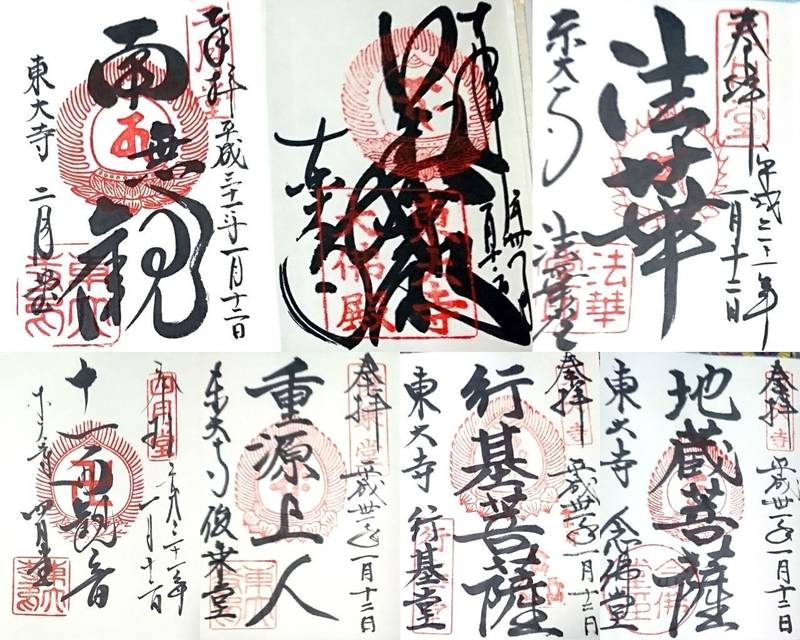 奉拝 平成三十一年一月十二日
南無観
東大寺 二月堂
奉拝
東大寺
大佛殿
奉拝 平成三十一年
一月十二日
法華
東大寺 法華堂
法華
四月堂
奉拝 平成三十一年
一月十二日
十一面観音
東大寺 四月堂
奉拝 平成卅一年一月十二日
重源上人
東大寺 俊乗堂
奉拝 平成卅一年一月十二日
行基菩薩
東大寺 行基堂
奉拝 平成卅一年一月十二日
地蔵菩薩
東大寺 念佛堂